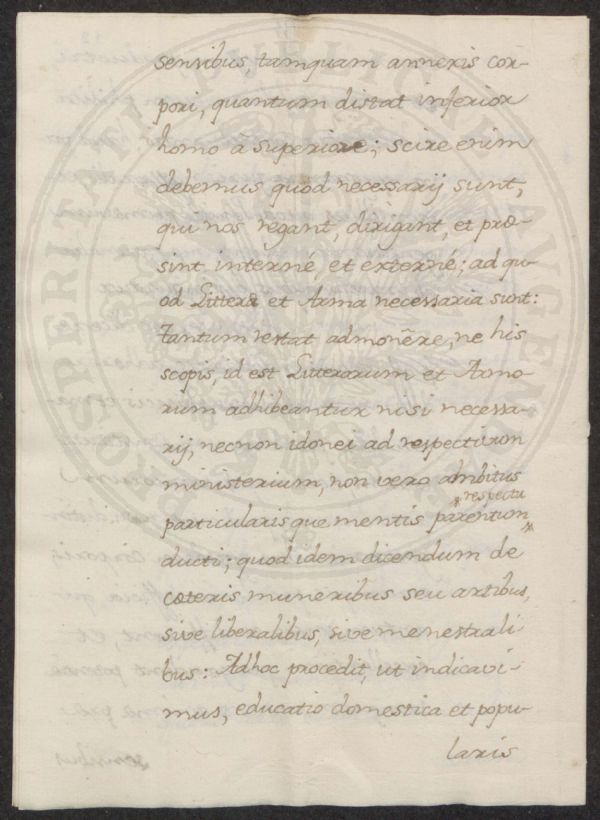 sensibus, tamquam annexis cor-
pori, quantum distat inferior
homo â superiore; scire enim
debemus quod necessarij sunt,
qui nos regant, dirigant, et præ-
sint interné, et externé; ad qu-
od Litteræ et Arma necessaria sunt:
tantum restat admonẽre, ne his
scopis, id est Litterarum et Armo-
rum adhibeantur nisi necessa-
rij, necnon idonei ad respectivum
ministerium, non vero ambitus
respectu
particularisque mentis parentum
ducti; quod idem dicendum de
cæteris muneribus seu artibus,
sive liberalibus, sive menestrali-
bus: Adhoc procedit, ut indicavi-
mus, educatio domestica et popu-
laris
PROSPERITATI PUBLICAE AVGENDAE